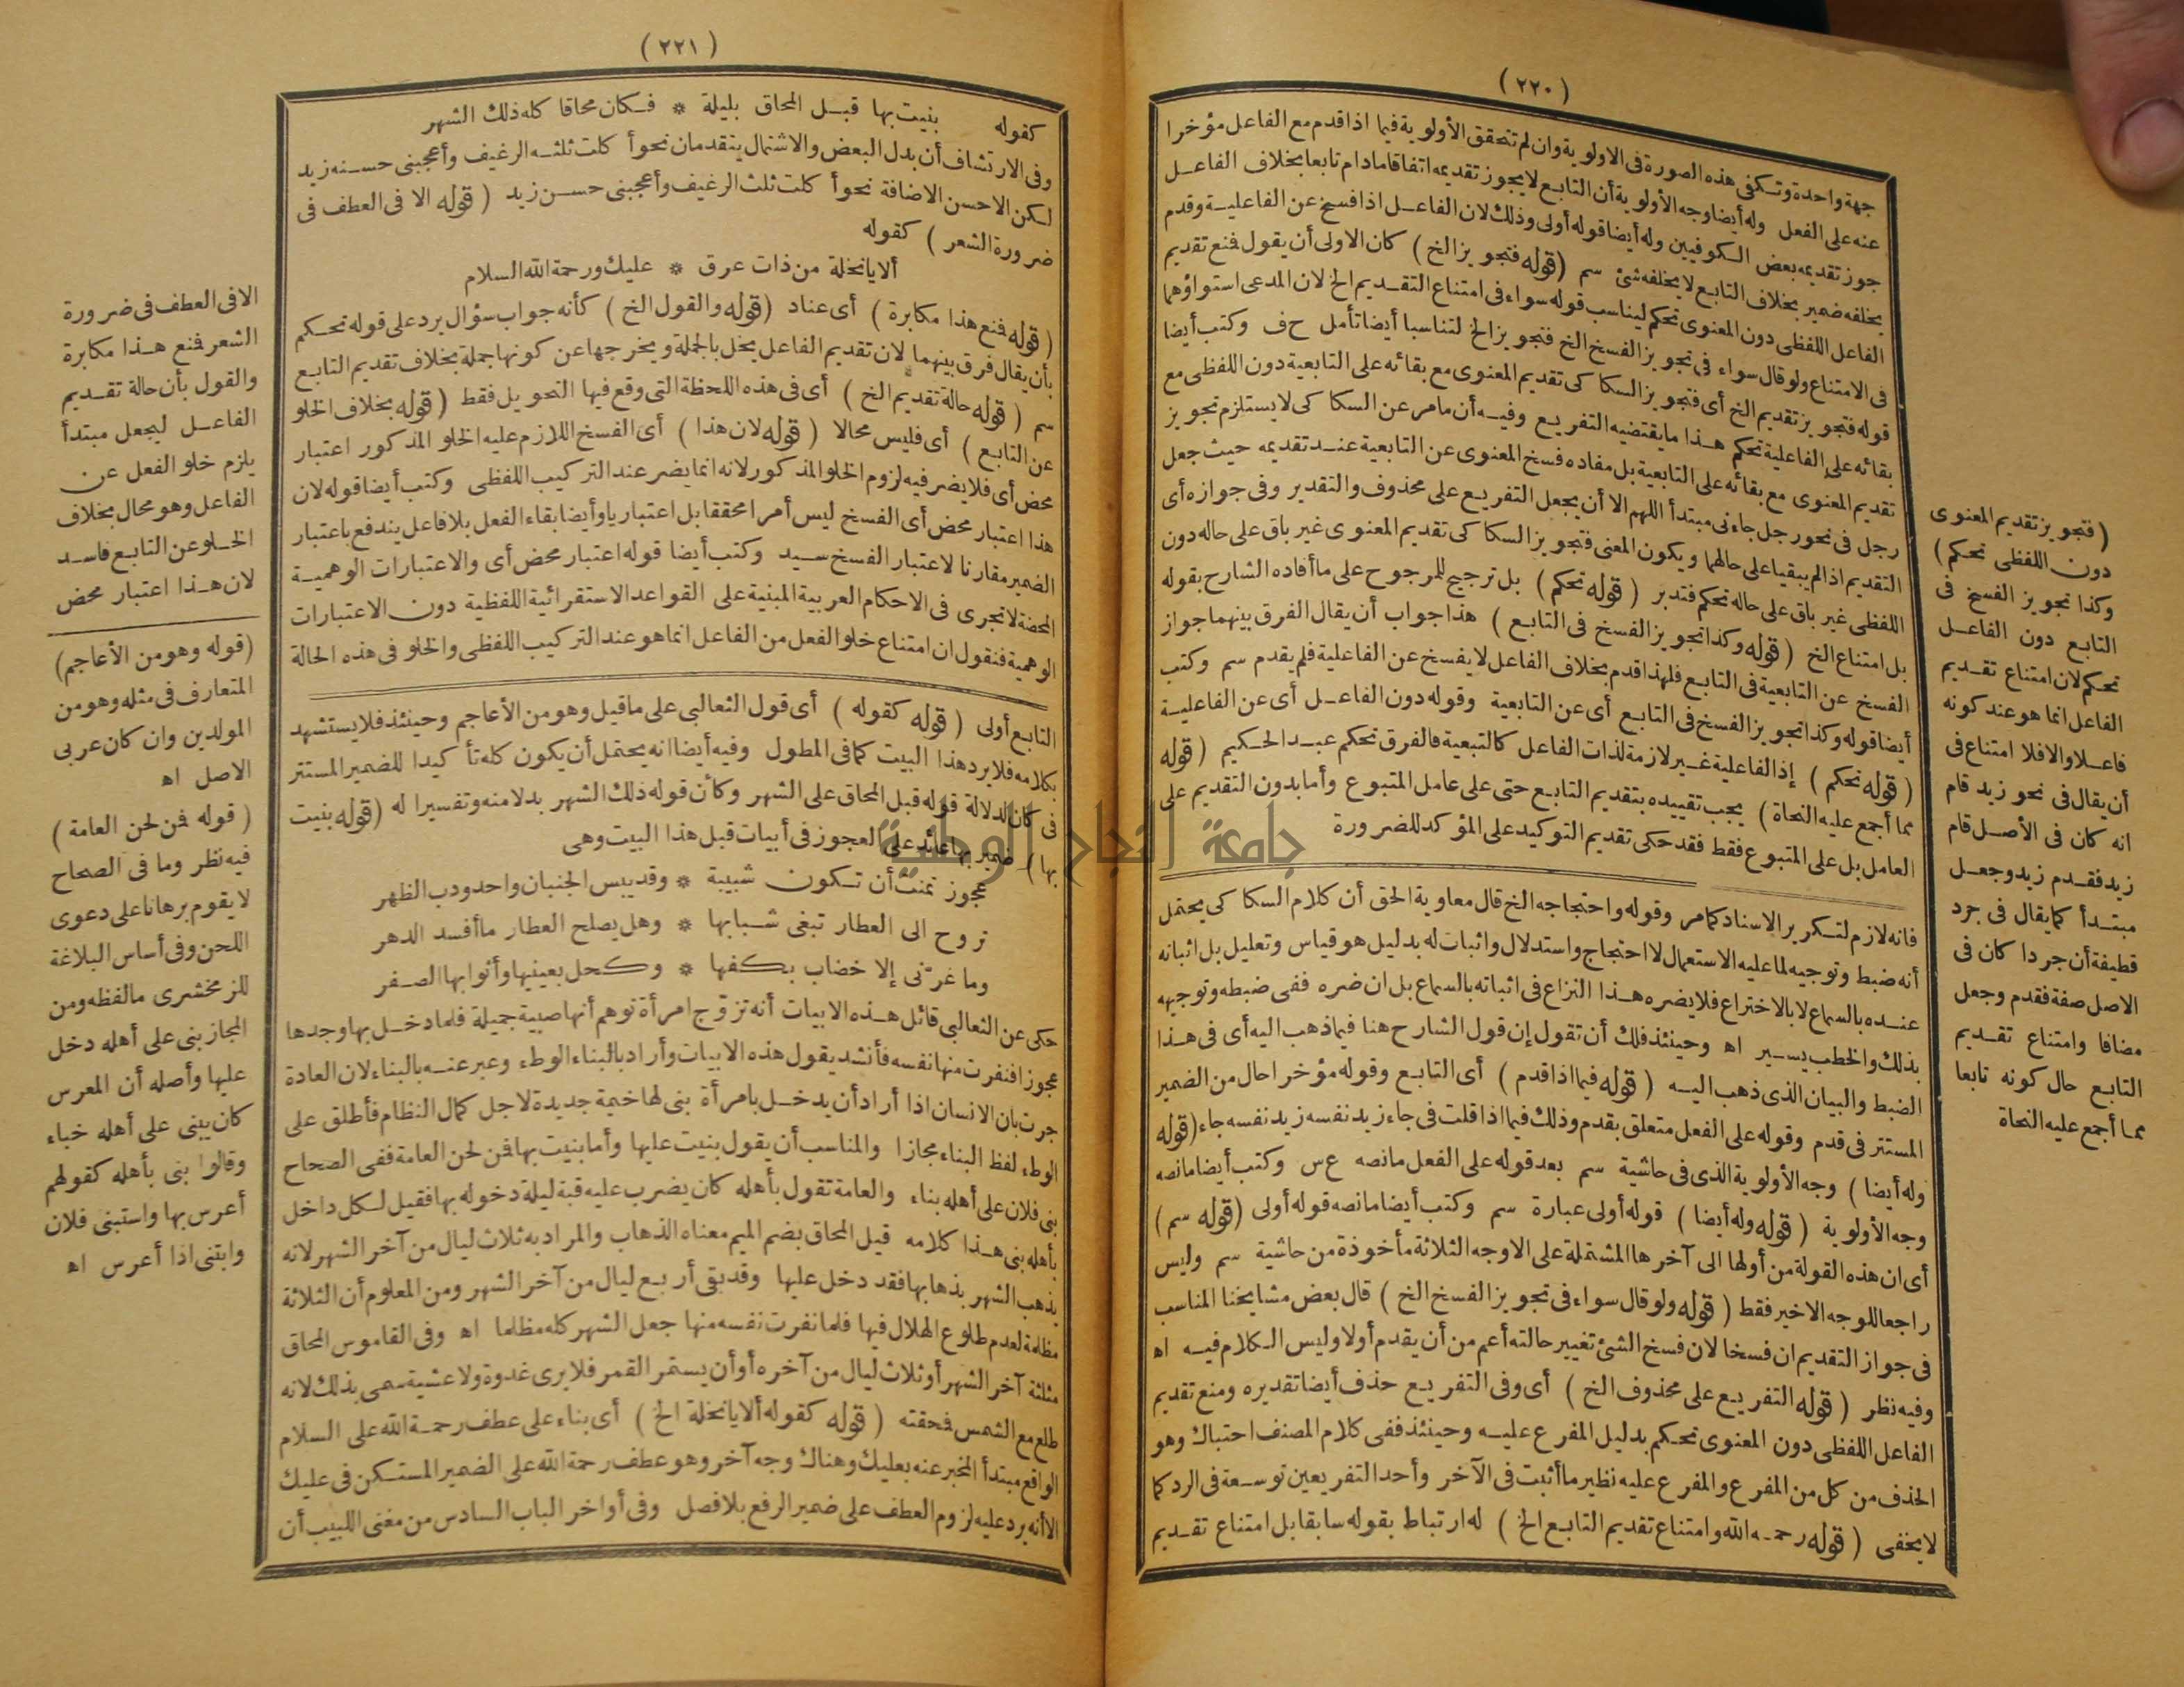 (٢٢٠)
جهة واحدة وتكفى هذه الصورة فى الاولوية وان لم تتحقق الأولوية فيما اذا قدم مع الفاعل مؤخرا
عنه على الفعل وله أيضا وجه الأولوية أن التابع لا يجوز تقديمه اتفاقا مادام تابعا بخلاف الفاعل
جوز تقديمه بعض الكوفيين وله أيضا قوله أولى وذلك لان الفاعل اذا فسخ عن الفاعلية وقدم
يخلفه ضمير بخلاف التابع لا يخلفه شئ سم (قوله فتجويز الخ) كان الاولى أن يقول فنع تقديم
الفاعل اللفظى دون المعنوى تحكم ليناسب قوله سواء فى امتناع التقديم الخ لان المدعى استواؤهما
فى الامتناع ولو قال سواء فى تجويز الفسخ الخ فتجويز الخ لتناسبا أيضا تأمل ح ف وكتب أيضا
قوله فتجويز تقديم الخ أى فتجويز السكاكى تقديم المعنوى مع بقائه على التابعية دون اللفظى مع
بقائه على الفاعلية تحكم هذا ما يقتضيه التفريع وفيه أن مامر عن السكاكى لا يستلزم تجويز
تقديم المعنوى مع بقائه على التابعية بل مفاده فسخ المعنوى عن التابعية عند تقديمه حيث جعل
رجل فى نحو رجل جاءنى مبتدأ اللهم الا أن يجعل التفريع على محذوف والتقدير وفى جوازه أى
التقديم اذا لم يبقيا على حالهما ويكون المعنى فتجويز السكاكى تقديم المعنوى غير باق على حاله دون
اللفظى غير باق على حاله تحكم فتدبر (قوله تحكم) بل ترجيح للمرجوح على ما أفاده الشارح بقوله
بل امتناع الخ (قوله وكذا تجويز الفسخ فى التابع) هذا جواب أن يقال الفرق بينهما جواز
الفسخ عن التابعية فى التابع فلهذا قدم بخلاف الفاعل لا يفسخ عن الفاعلية فلم يقدم سم وكتب
أيضا قوله وكذا تجويز الفسخ فى التابع أى عن التابعية وقوله دون الفاعل أى عن الفاعلية
(قوله تحكم) إذ الفاعلية غير لازمة لذات الفاعل كالتبعية فالفرق تحكم عبد الحكيم (قوله
مما أجمع عليه النحاة) يجب تقييده بتقديم التابع حتى على عامل المتبوع وأما بدون التقديم على
العامل بل على المتبوع فقط فقد حكى تقديم التوكيد على المؤكد للضرورة
فانه لازم لتكرير الاسناد كما مر وقوله واحتجاجه الخ قال معاوية الحق أن كلام السكاكى يحتمل
أنه ضبط وتوجيه لما عليه الاستعمال لا احتجاج واستدلال واثبات له بدليل هو قياس وتعليل بل اثباته
عنده بالسماع لا بالاختراع فلا يضره هذا النزاع فى اثباته بالسماع بل ان ضره ففى ضبطه وتوجيهه
بذلك والخطب يسير اه وحينئذ فلك أن تقول إن قول الشارح هنا فيما ذهب اليه أى فى هذا
الضبط والبيان الذى ذهب اليه (قوله فيما اذا قدم) أى التابع وقوله مؤخرا حال من الضمير
المستتر فى قدم وقوله على الفعل متعلق بقدم وذلك فيما اذا قلت فى جاء زيد نفسه زيد نفسه جاء (قوله
وله أيضا) وجه الأولوية الذى فى حاشية سم بعد قوله على الفعل مانصه ع س وكتب أيضا مانصه
وجه الأولوية (قوله وله أيضا) قوله أولى عبارة سم وكتب أيضا مانصه قوله أولى (قوله سم)
أى ان هذه القولة من أولها الى آخرها المشتملة على الاوجه الثلاثة مأخوذة من حاشية سم وليس
راجعا للوجه الاخير فقط (قوله ولو قال سواء فى تجويز الفسخ الخ) قال بعض مشايخنا المناسب
فى جواز التقديم ان فسخا لان فسخ الشئ تغيير حالته أعم من أن يقدم أولا وليس الكلام فيه اه
وفيه نظر (قوله التفريع على محذوف الخ) أى وفى التفريع حذف أيضا تقديره ومنع تقديم
الفاعل اللفظى دون المعنوى تحكم بدليل المفرع عليه وحينئذ ففى كلام المصنف احتباك وهو
الحذف من كل من المفرع والمفرع عليه نظير ما أثبت فى الآخر وأحد التفريعين توسعة فى الرد كما
لا يخفى (قوله رحمه الله وامتناع تقديم التابع الخ) له ارتباط بقوله سابقا بل امتناع تقديم
(فتجويز تقديم المعنوى
دون اللفظى تحكم)
وكذا تجويز الفسخ فى
التابع دون الفاعل
تحكم لان امتناع تقديم
الفاعل انما هو عند كونه
فاعلا والا فلا امتناع فى
أن يقال فى نحو زيد قام
انه كان فى الأصل قام
زيد فقدم زيد وجعل
مبتدأ كما يقال فى جرد
قطيفة أن جردا كان فى
الاصل صفة فقدم وجعل
مضافا وامتناع تقديم
التابع حال كونه تابعا
مما أجمع عليه النحاة
(٢٢١)
كقوله بنيت بها قبل المحاق بليلة * فكان محاقا كله ذلك الشهر
وفى الارتشاف أن بدل البعض والاشتمال يتقدمان نحو أكلت ثلثه الرغيف وأعجبنى حسنه زيد
لكن الاحسن الاضافة نحو أكلت ثلث الرغيف وأعجبنى حسن زيد (قوله الا فى العطف فى
ضرورة الشعر) كقوله
ألا يا نخلة من ذات عرق * عليك ورحمة الله السلام
(قوله فنع هذا مكابرة) أى عناد (قوله والقول الخ) كأنه جواب سؤال يرد على قوله تحكم
بأن يقال فرق بينهما لان تقديم الفاعل يخل بالجملة ويخرجها عن كونها جملة بخلاف تقديم التابع
سم (قوله حالة تقديم الخ) أى فى هذه اللحظة التى وقع فيها التحويل فقط (قوله بخلاف الخلو
عن التابع) أى فليس محالا (قوله لان هذا) أى الفسخ اللازم عليه الخلو المذكور اعتبار
محض أى فلا يضر فيه لزوم الخلو المذكور لانه انما يضر عند التركيب اللفظى وكتب أيضا قوله لان
هذا اعتبار محض أى الفسخ ليس أمرا محققا بل اعتباريا وأيضا بقاء الفعل بلا فاعل يندفع باعتبار
الضمير مقارنا لاعتبار الفسخ سيد وكتب أيضا قوله اعتبار محض أى والاعتبارات الوهمية
المحضة لا تجرى فى الاحكام العربية المبنية على القواعد الاستقرائية اللفظية دون الاعتبارات
الوهمية فنقول ان امتناع خلو الفعل من الفاعل انما هو عند التركيب اللفظى والخلو فى هذه الحالة
التابع أولى (قوله كقوله) أى قول الثعالبى على ماقيل وهو من الأعاجم وحينئذ فلا يستشهد
بكلامه فلا يرد هذا البيت كما فى المطول وفيه أيضا انه يحتمل أن يكون كله تأكيدا للضمير المستتر
فى كان لدلالة قوله قبل المحاق على الشهر وكأن قوله ذلك الشهر بدلا منه وتفسيرا له (قوله بنيت
بها) ضمير بها عائد على العجوز فى أبيات قبل هذا البيت وهى
عجوز تمنت أن تكون شبيبة * وقد يبس الجنبان واحدودب الظهر
تروح الى العطار تبغى شبابها * وهل يصلح العطار ما أفسد الدهر
وما غرّنى إلا خضاب بكفها * وكحل بعينيها وأثوابها الصفر
حكى عن الثعالبى قائل هذه الابيات أنه تزوّج امرأة توهم أنها صبية جميلة فلما دخل بها وجدها
عجوزا فنفرت منها نفسه فأنشد يقول هذه الابيات وأراد بالبناء الوطء وعبر عنه بالبناء لان العادة
جرت بان الانسان اذا أراد أن يدخل بامرأة بنى لها خيمة جديدة لاجل كمال النظام فأطلق على
الوطء لفظ البناء مجازا والمناسب أن يقول بنيت عليها وأما بنيت بها فن لحن العامة ففى الصحاح
بنى فلان على أهله بناء والعامة تقول بأهله كان يضرب عليه قبة ليلة دخوله بها فقيل لكل داخل
بأهله بنى هذا كلامه قيل المحاق بضم الميم معناه الذهاب والمراد به ثلاث ليال من آخر الشهر لانه
يذهب الشهر بذهابها فقد دخل عليها وقد بقى أربع ليال من آخر الشهر ومن المعلوم أن الثلاثة
مظلمة لعدم طلوع الهلال فيها فلما نفرت نفسه منها جعل الشهر كله مظلما اه وفى القاموس المحاق
مثلثة آخر الشهر أو ثلاث ليال من آخره أو أن يستمر القمر فلا يرى غدوة ولا عشية سمى بذلك لانه
طلع مع الشمس فمحقته (قوله كقوله ألا يا نخلة الخ) أى بناء على عطف رحمة الله على السلام
الواقع مبتدأ المخبر عنه بعليك وهناك وجه آخر وهو عطف رحمة الله على الضمير المستكن فى عليك
الا أنه يرد عليه لزوم العطف على ضمير الرفع بلا فصل وفى أواخر الباب السادس من مغنى اللبيب أن
الا فى العطف فى ضرورة
الشعر فنع هذا مكابرة
والقول بأن حالة تقديم
الفاعل ليجعل مبتدأ
يلزم خلو الفعل عن
الفاعل وهو محال بخلاف
الخلو عن التابع فاسد
لان هذا اعتبار محض
(قوله وهو من الأعاجم)
المتعارف فى مثله وهو من
المولدين وان كان عربى
الاصل اه
(قوله فن لحن العامة)
فيه نظر وما فى الصحاح
لا يقوم برهانا على دعوى
اللحن وفى أساس البلاغة
للزمخشرى مالفظه ومن
المجاز بنى على أهله دخل
عليها وأصله أن المعرس
كان يبنى على أهله خباء
وقالوا بنى بأهله كقولهم
أعرس بها واستبنى فلان
وابتنى اذا أعرس اه
جامعة النجاح الوطنية